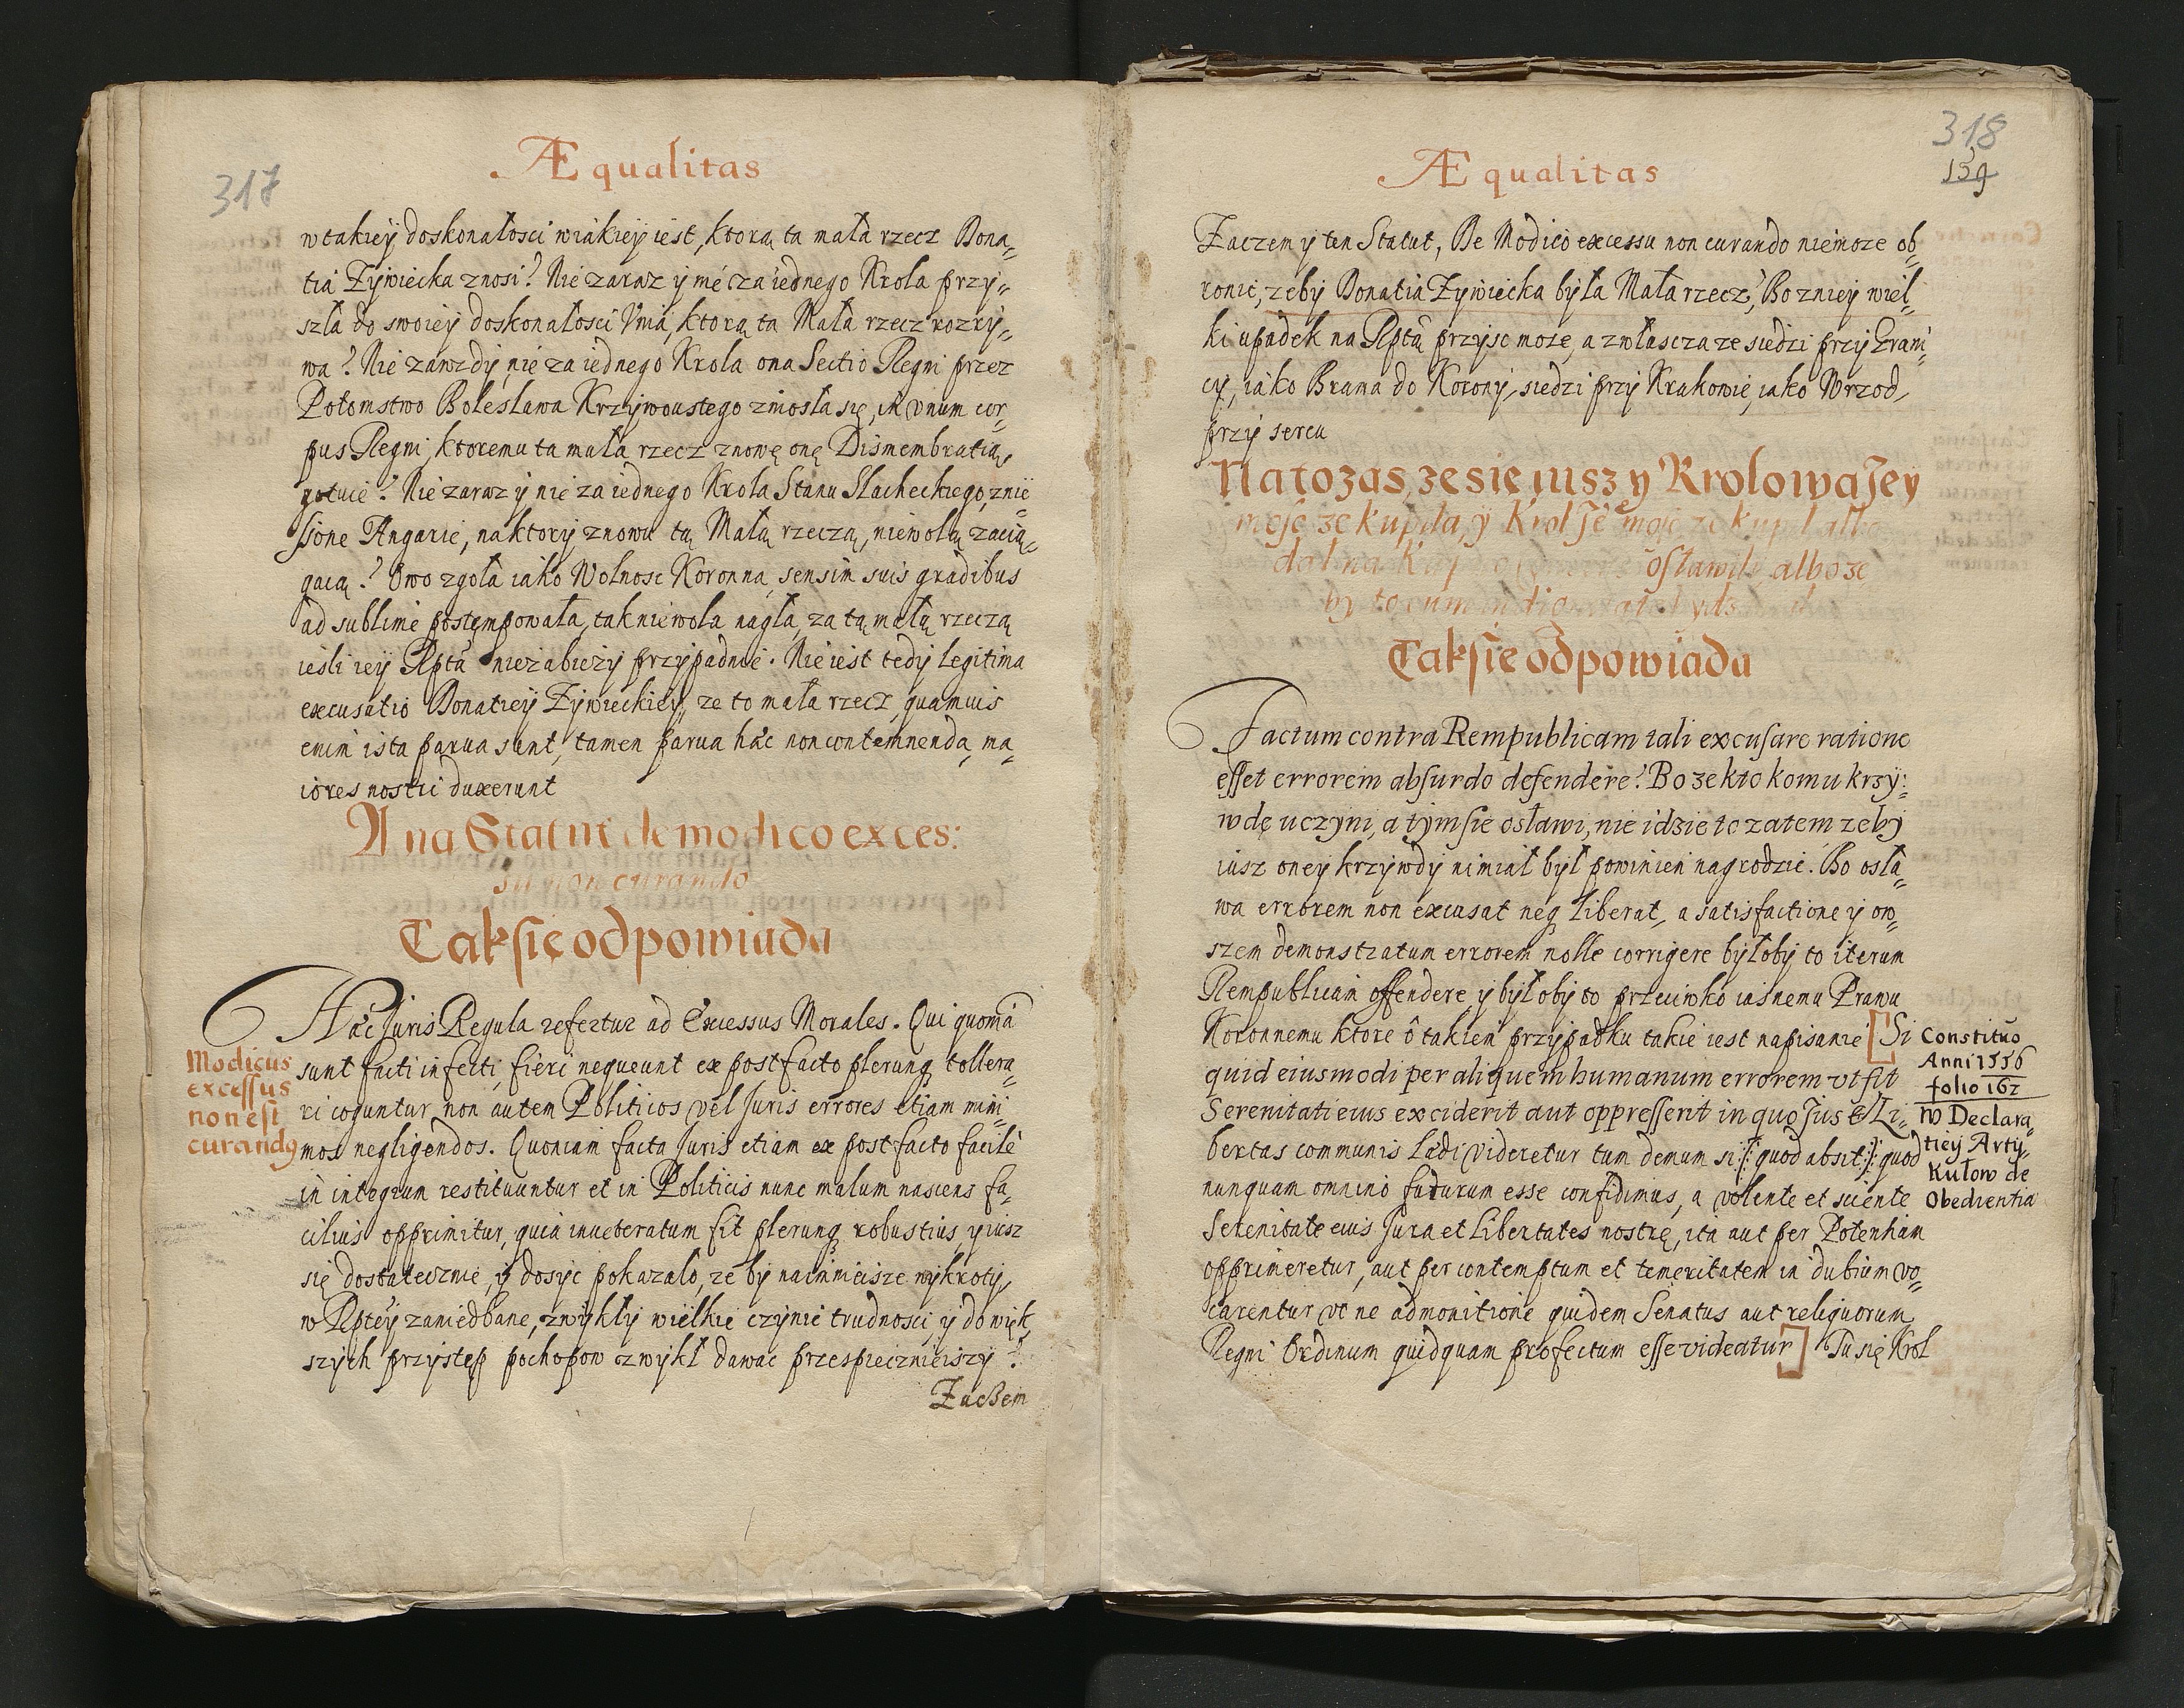 317
Æqualitas
w takiey doskonałosci wiakiey iest, ktorą ta mała rzecz Dona„
tia Zywiecka znosi? Nie zaraz y nie za iednego Krola przy„
szła do swoiey doskonałosci Vnia, ktorą ta Mała rzecz rozry„
wa? Nie zawzdy nie za iednego Krola ona Sectio Regni przez
Potomstwo Bolesława Krzywoustego zniosła się, in vnum cor„
pus Regni, ktoremu ta mała rzecz znowę onę Dismembratią
gotuie? Nie zaraz y nie za iednego Krola Stanu Slacheckiego, znie
ssione Angarie, na ktory znowu tą Małą rzeczą, niewolą zacią„
gaią? Owo zgoła iako Wolnosc Koronna sensim suis gradibus
ad sublime postęmpowała, tak niewola nagła, za tą małą rzeczą
iesli iey Rptã niezabiezy przypadnie. Nie iest tedy legitima
excusatio Donatiey Zywieckiey, ze to mała rzecz, quamuis
enim ista parua sunt, tamen parua hæc non contemnenda, ma„
iores nostri duxerunt
A na Statut de modico exces:
su non curando
Tak się odpowiada
Hæc Juris Regula refertur ad Excessus Morales. Qui quoniã
sunt facti infecti, fieri nequeunt ex post facto plerunq tollera„
ri coguntur, non autem Politicos vel Juris errores etiam mini„
mos negligendos. Quoniam facta Juris etiam ex post facto facile
in integrum restituuntur et in Politicis nunc malum nascens fa„
cilius opprimitur, quia inueteratum fit plerunq robustius, y iusz
się dostatecznie, y dosyc pokazało, ze by naimnieisze wykroty,
w Rptey zaniedbane, zwykły wielkie czynic trudnosci, y do więk„
szych przystęp pochopow zwykł dawac przespiecznieiszy?
Zaczem
Modicus
excessus
non est
curandus
318
159
Æqualitas
Zaczem y ten Statut, De Modico excessu non curando niemoze ob„
ronic, zeby Donatia Zywiecka była Mała rzecz? Bo z niey wiel„
ki upadek na Rptã przyisc moze, a zwłascza ze siedzi przy Grani„
cy, iako Brama do Korony, siedzi przy Krakowie, iako Wrzod,
przy sercu
Na to zas, ze sie iusz y Krolowa Jey
mosc ze kupiła, y Krol Je mosc ze kupił albo
dał na osławili, albo ze
by to cum
Tak sie odpowiada
Factum contra Rempublicam tali excusare ratione
esset errorem absurdo defendere? Bo ze kto komu krzy:
wdę uczyni, a tym sie osławi, nie idzie to zatem zeby
iusz oney krzywdy nimiał był powinien nagrodzic. Bo osła„
wa errorem non excusat neq liberat, a satisfactione y ow„
szem demonstratum errorem nolle corrigere byłoby to iterum
Rempublicam offendere y byłoby to przeciwko iasnemu Prawu
Koronnemu ktore o takiem przypadku takie iest napisanie [Si
quid eiusmodi per aliquem humanum errorem vt fit
Serenitati eius exciderit aut oppresserit in quo Jus et Li„
bertas communis lædi videretur tum demum si /: quod absit :/ quod
nunquam omnino futurum esse confidimus, a volente et sciente
Serenitate eius Jura et Libertates nostrę, ita aut per Potentiam
opprimeretur, aut per contemptum et temeritatem in dubium vo„
carentur vt ne admonitione quidem Senatus aut reliquorum
Regni Ordinum quidquam profectum esse videatur] Tu się Krol
Constitũo
Anni 1556
folio 162
w Declara„
tiey Arty„
kułow de
Obedientia